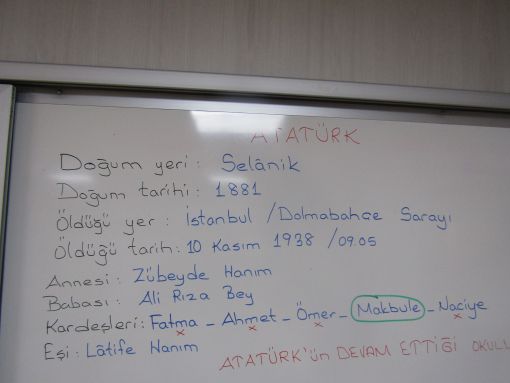 ATATÜRK
Doğum yeri: Selânik
Doğum tarihi: 1881
Öldüğü yer: İstanbul / Dolmabahçe Sarayı
Öldüğü tarih: 10 Kasım 1938 / 09.05
Annesi: Zübeyde Hanım
Babası: Ali Rıza Bey
Kardeşleri: Fatma - Ahmet - Ömer - Makbule - Naciye
Eşi: Lâtife Hanım
ATATÜRK'ün DEVAM ETTİĞİ OKULL